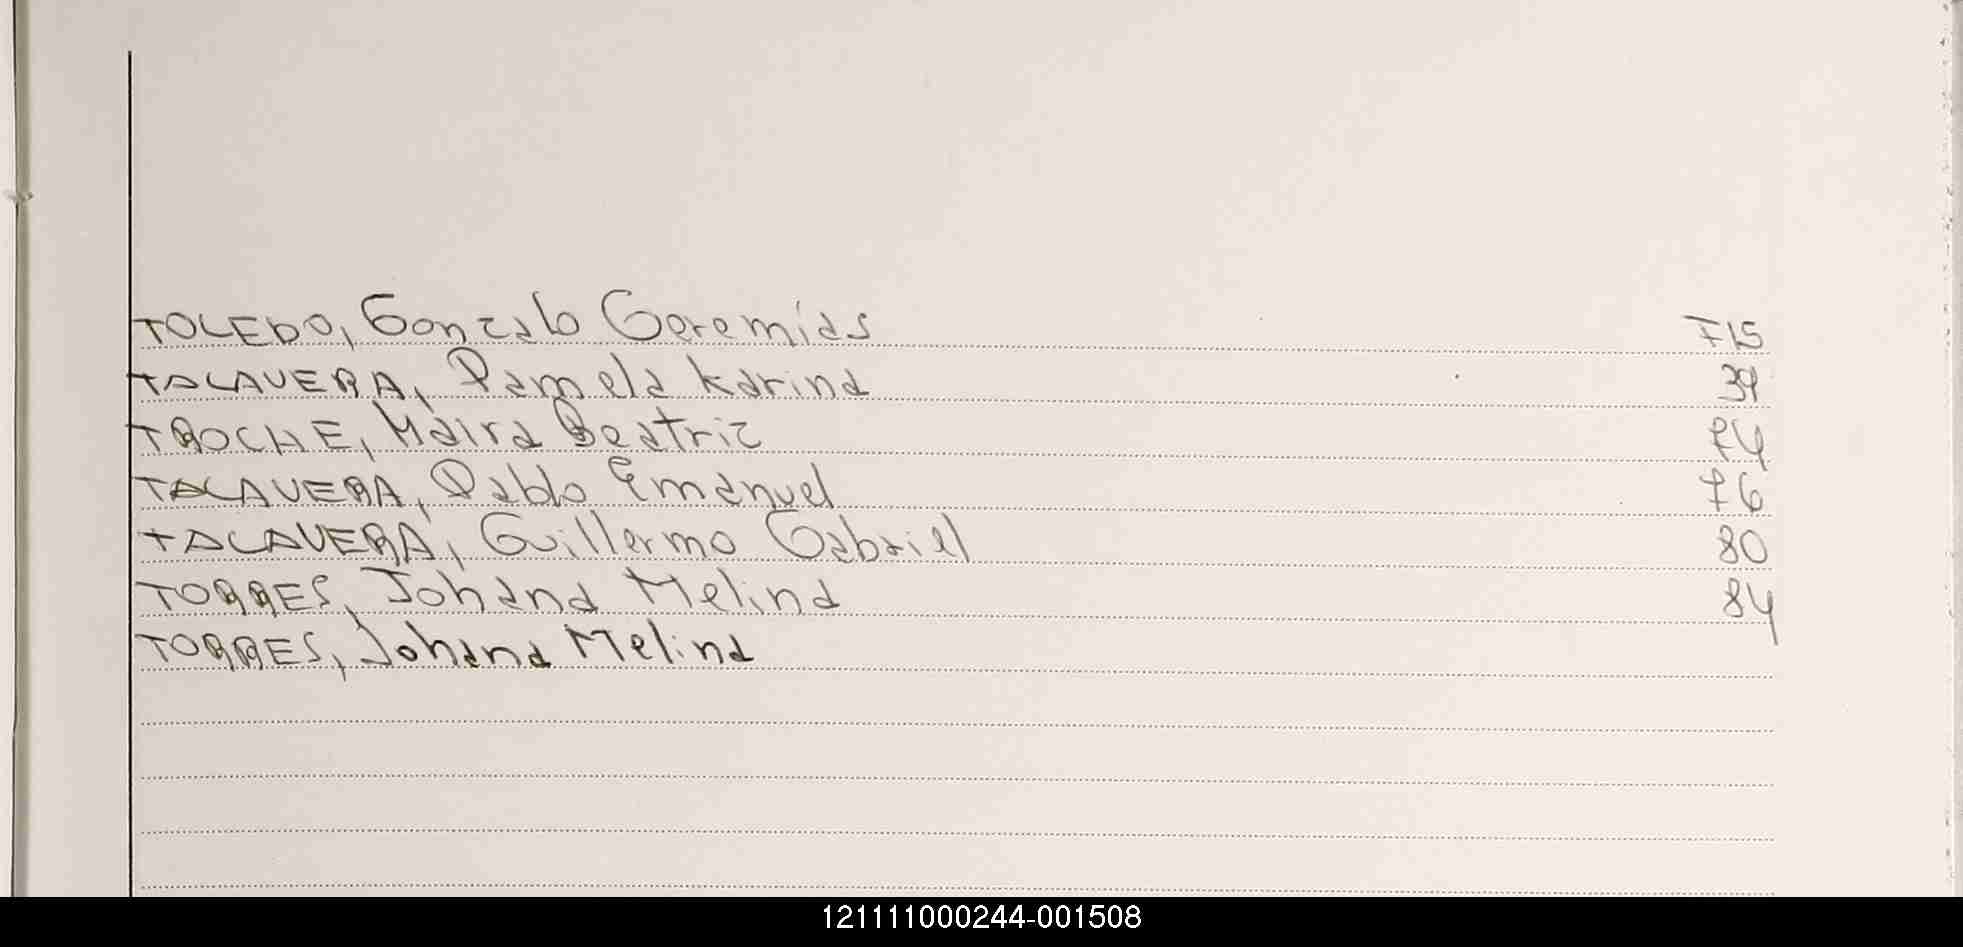 TOLEDO, Gonzalo Geremias F 15
TALAVERA, Pamela Karina 37
TROCHE, Maira Beatriz 74
TALAVERA, Pablo Emanuel 76
TALAVERA, Guillermo Gabriel 80
TORRES, Johana Melina 84
TORRES, Johana Melina
121111000244-001508